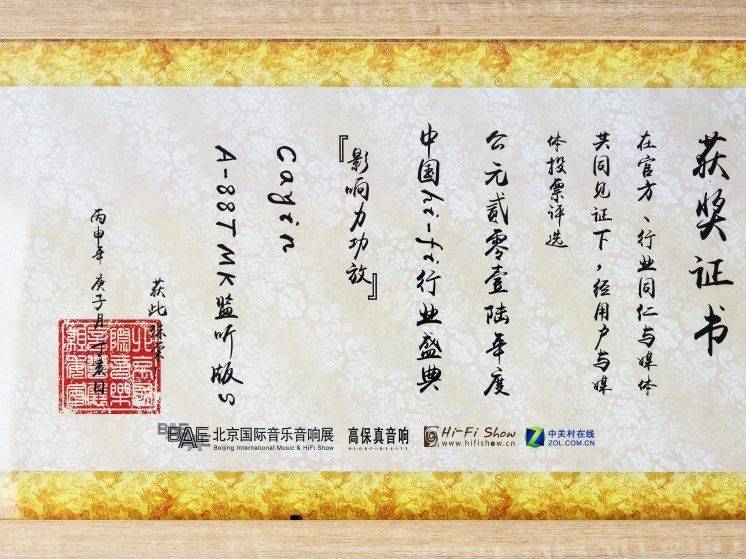 获奖证书
在官方、行业同仁与媒体
共同见证下，经用户与媒
体投票评选
公元贰零壹陆年度
中国hi-fi行业盛典
『影响力功放』
Cayin
A-88T MK监听版
获此殊荣
丙申年 庚子月 丁亥日
BAE 北京国际音乐音响展
Beijing International Music & HiFi Show
高保真音响
HIGHFIDELITY
Hi-Fi Show
www.hifishow.cn
中关村在线
ZOL.COM.CN